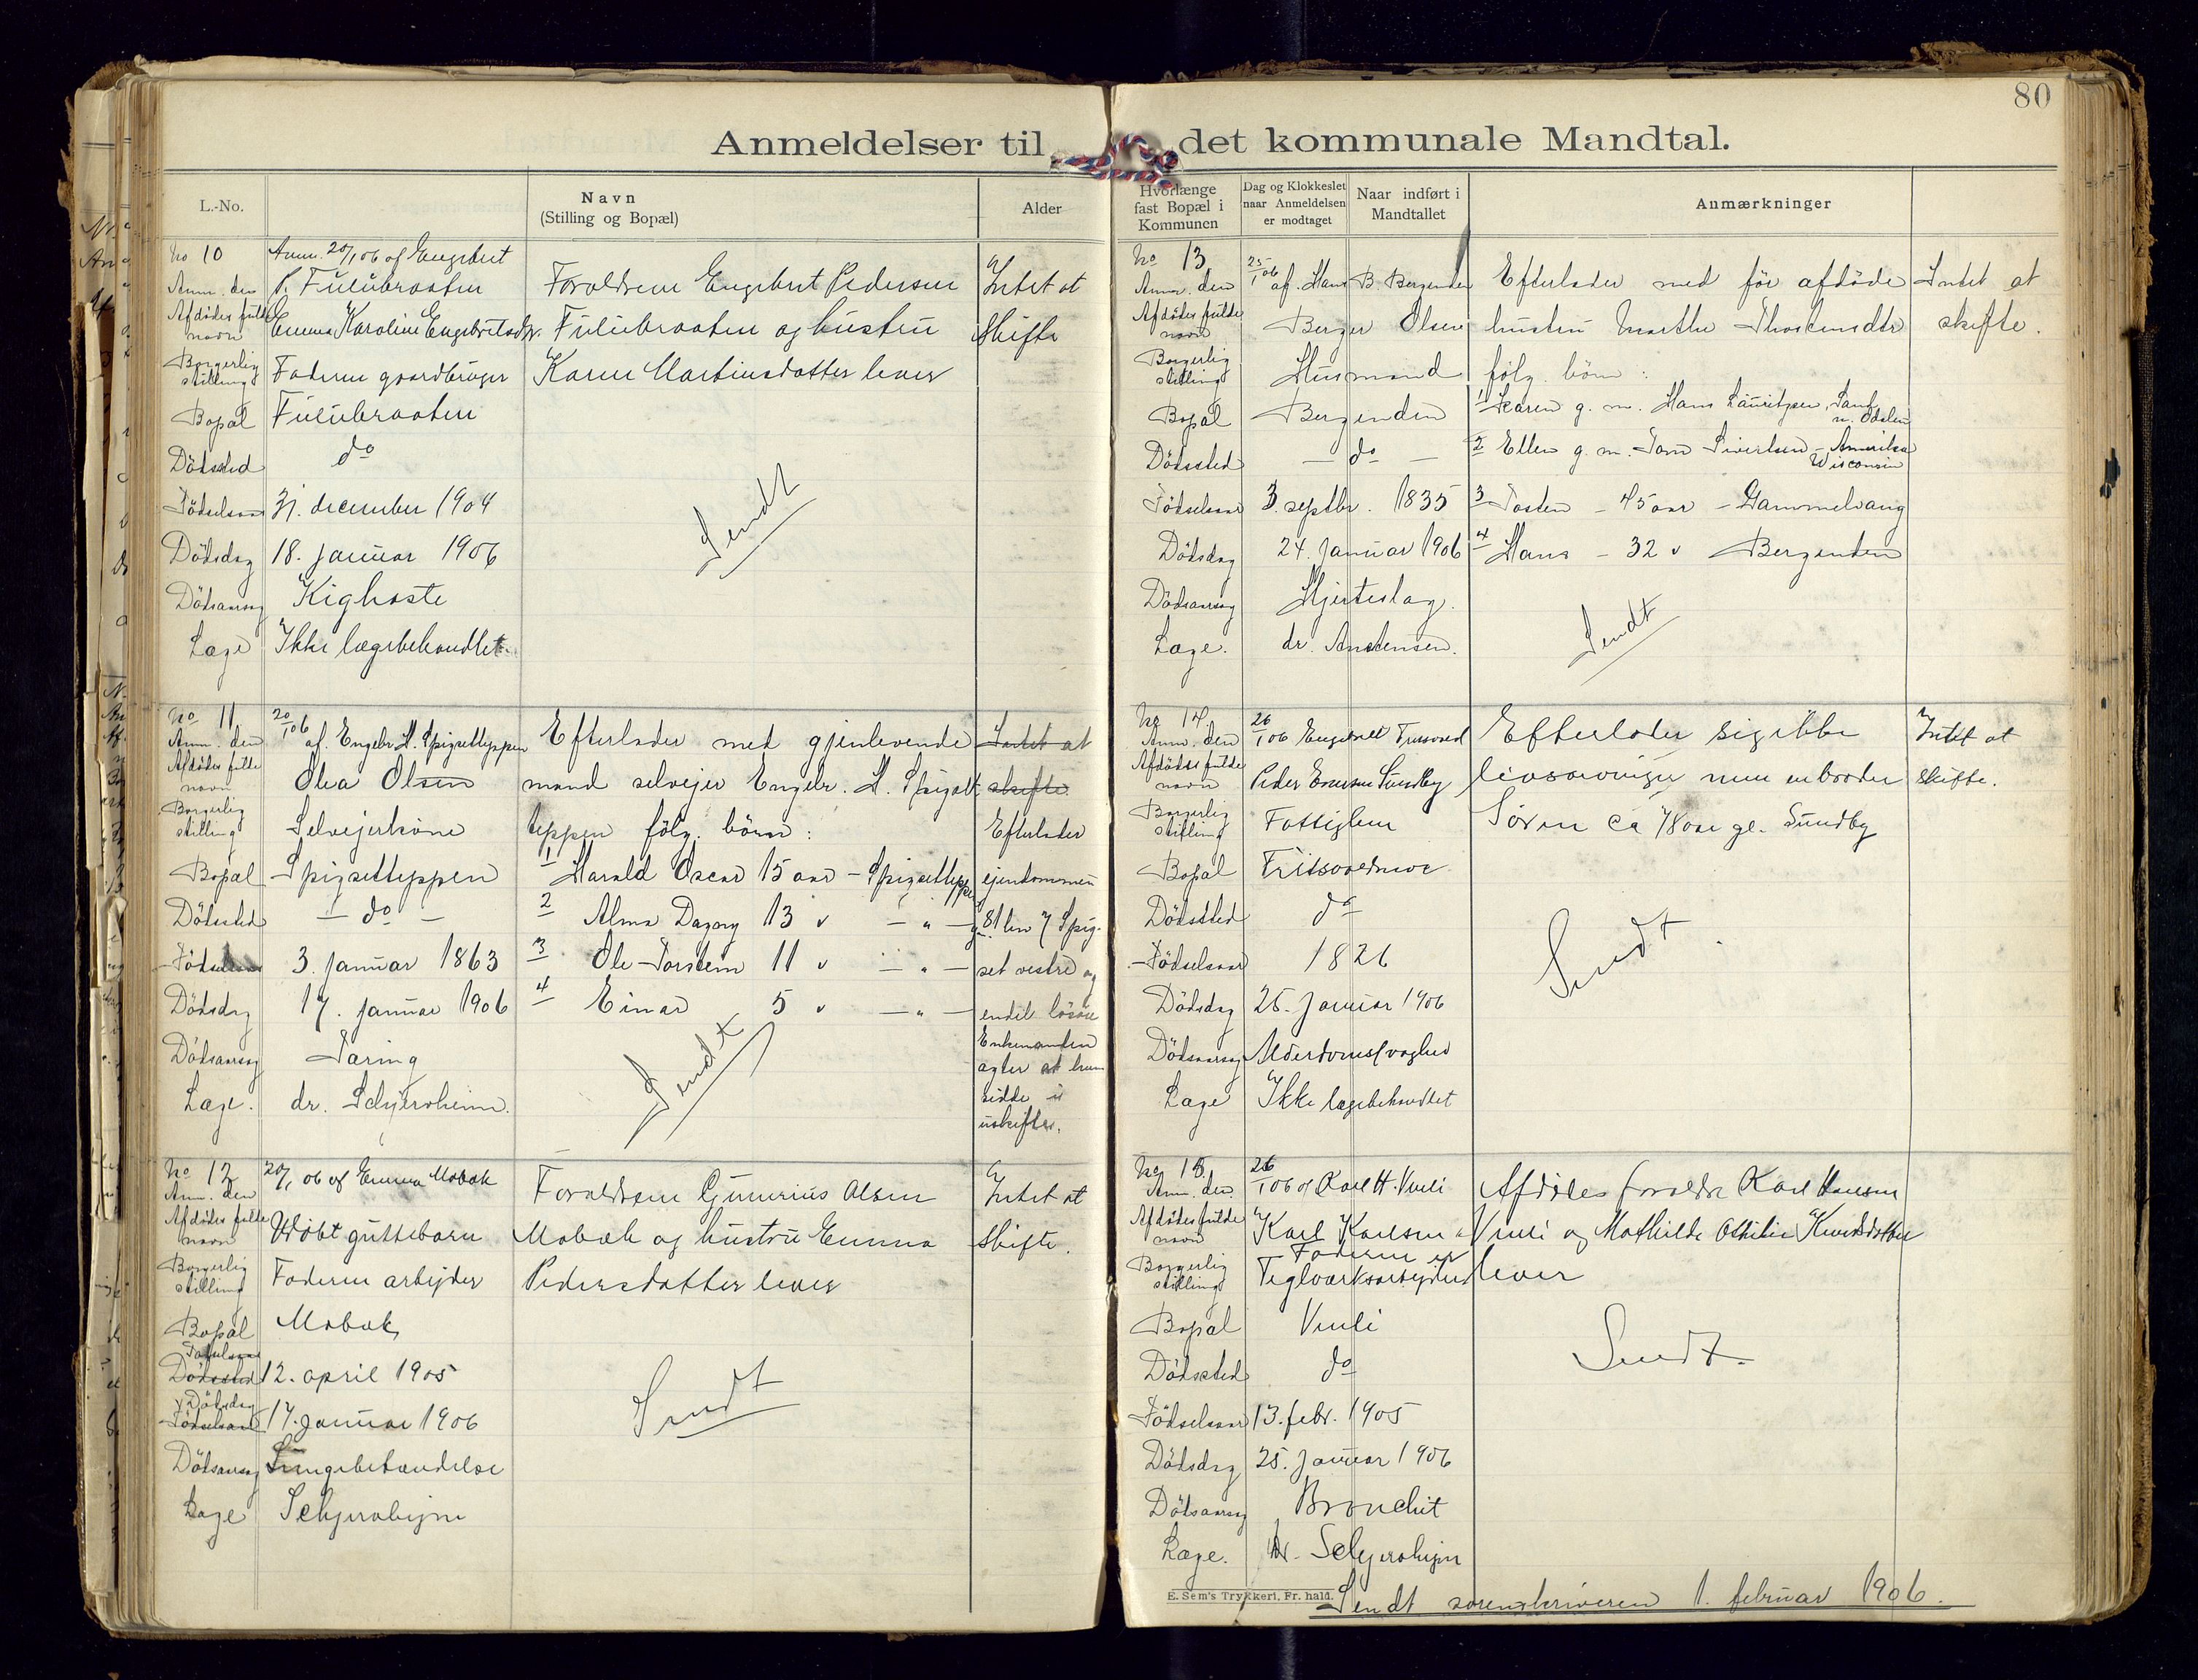 80
Anmeldelser til det kommunale Mandtal.
L.-No.
Navn
(Stilling og Bopæl)
Alder
Hvorlænge fast Bopæl i Kommunen
Dag og Klokkeslet naar Anmeldelsen er modtaget
Naar indført i Mandtallet
Anmærkninger
No 10
Anm. den
Anm. 20/1 06 af Engebret
P. Fulubraaten
Afdödes fulde navn
Emma Karoline Engebretsdtr.
Borgerlig stilling
Faderen gaardbruger
Bopæl
Fulubraaten
Dödssted
do
Födselsaar
31. december 1904
Dödsdag
18. januar 1906
Dödsaarsag
Kighoste
Læge
Ikke lægebehandlet.
Forældrene Engebret Pedersen
Fulubraaten og hustru
Karen Martinsdatter lever
Sendt
Intet at
skifte
No 11.
Anm. den
20/1 06 af. Engebr. H. Spigsetteppen
Afdödes fulde navn
Olea Olsen
Borgerlig stilling
Selveierkone
Bopæl
Spigsetteppen
Dödssted
— do —
Födselsaar
3. januar 1863
Dödsdag
17. januar 1906
Dödsaarsag
Tæring
Læge.
dr.
Efterlader med gjenlevende
mand selvejer Engebr. H. Spigset-
teppen fölg. börn:
1 Harald Oscar 15 aar - Spigsetteppen
2 Alma Dagny 13 " — " —
3 Ole Torstein 11 " — " —
4 Einar 5 " — " —
Sendt
Intet at
skifte
Efterlader
ejendommen
g. 81 bn 7 Spig-
set vestre og
endel lösöre
Enkemanden
agter at hen-
sidde i
uskiftet.
No 12
Anm. den
20/1 06 af Emma Mobæk
Afdödes fulde navn
Udöbt guttebarn
Borgerlig stilling
Faderen arbejder
Bopæl
Mobæk
Födselsaar
Dödssted
12. april 1905
Dödsdag
Födselsaar
17. januar 1906
Dödsaarsag
Lungebetændelse
Læge
Forældrene Gunerius Olsen
Mobæk og hustru Emma
Pedersdatter lever
Sendt
Intet at
skifte.
No 13
Anm. den
25/1 06 af. Hans B. Bergenden
Afdödes fulde navn
Berger Olsen
Borgerlig stilling
Husmand
Bopæl
Bergenden
Dödssted
— do —
Födselsaar
3. septbr. 1835
Dödsdag
24. januar 1906
Dödsaarsag
Hjerteslag.
Læge.
dr. Anstensen.
Efterlader med för afdöde
hustru Marthe
fölg. börn:
1 Karen g. m. Hans Lauritzen, Sand
n. Odalen
2 Ellen g. m. Sivertsen - Amerika
Wisconsin
3 Tosten - 45 aar - Gammelvang
4 Hans - 32 " Bergenden
Sendt
Intet at
skifte.
No 14.
Anm. den
26/1 06
Afdödes fulde navn
Peder Sundby
Borgerlig stilling
Fattiglem
Bopæl
Dödssted
do
Födselsaar
1826
Dödsdag
25. januar 1906
Dödsaarsag
Alderdomssvaghed
Læge
Ikke lægebehandlet
Efterlader sig ikke
livsarvinger men en broder
Sören ca 78 aar gl. Sundby
Sendt
Intet at
skifte.
No 15.
Anm. den
26/1 06 af Karl H. Vuli
Afdödes fulde navn
Karl Karlsen
Borgerlig stilling
Faderen er
Teglværksarbejder
Bopæl
Vuli
Dödssted
do
Födselsaar
13. febr. 1905
Dödsdag
25. januar 1906
Dödsaarsag
Bronchit
Læge.
dr.
Afdödes forældre Karl Hansen
Vuli og Mathilde Othilie Knudsdatter
lever
Sendt.
E. Sem's Trykkeri, Fr. hald.
Sendt sorenskriveren 1. februar 1906.